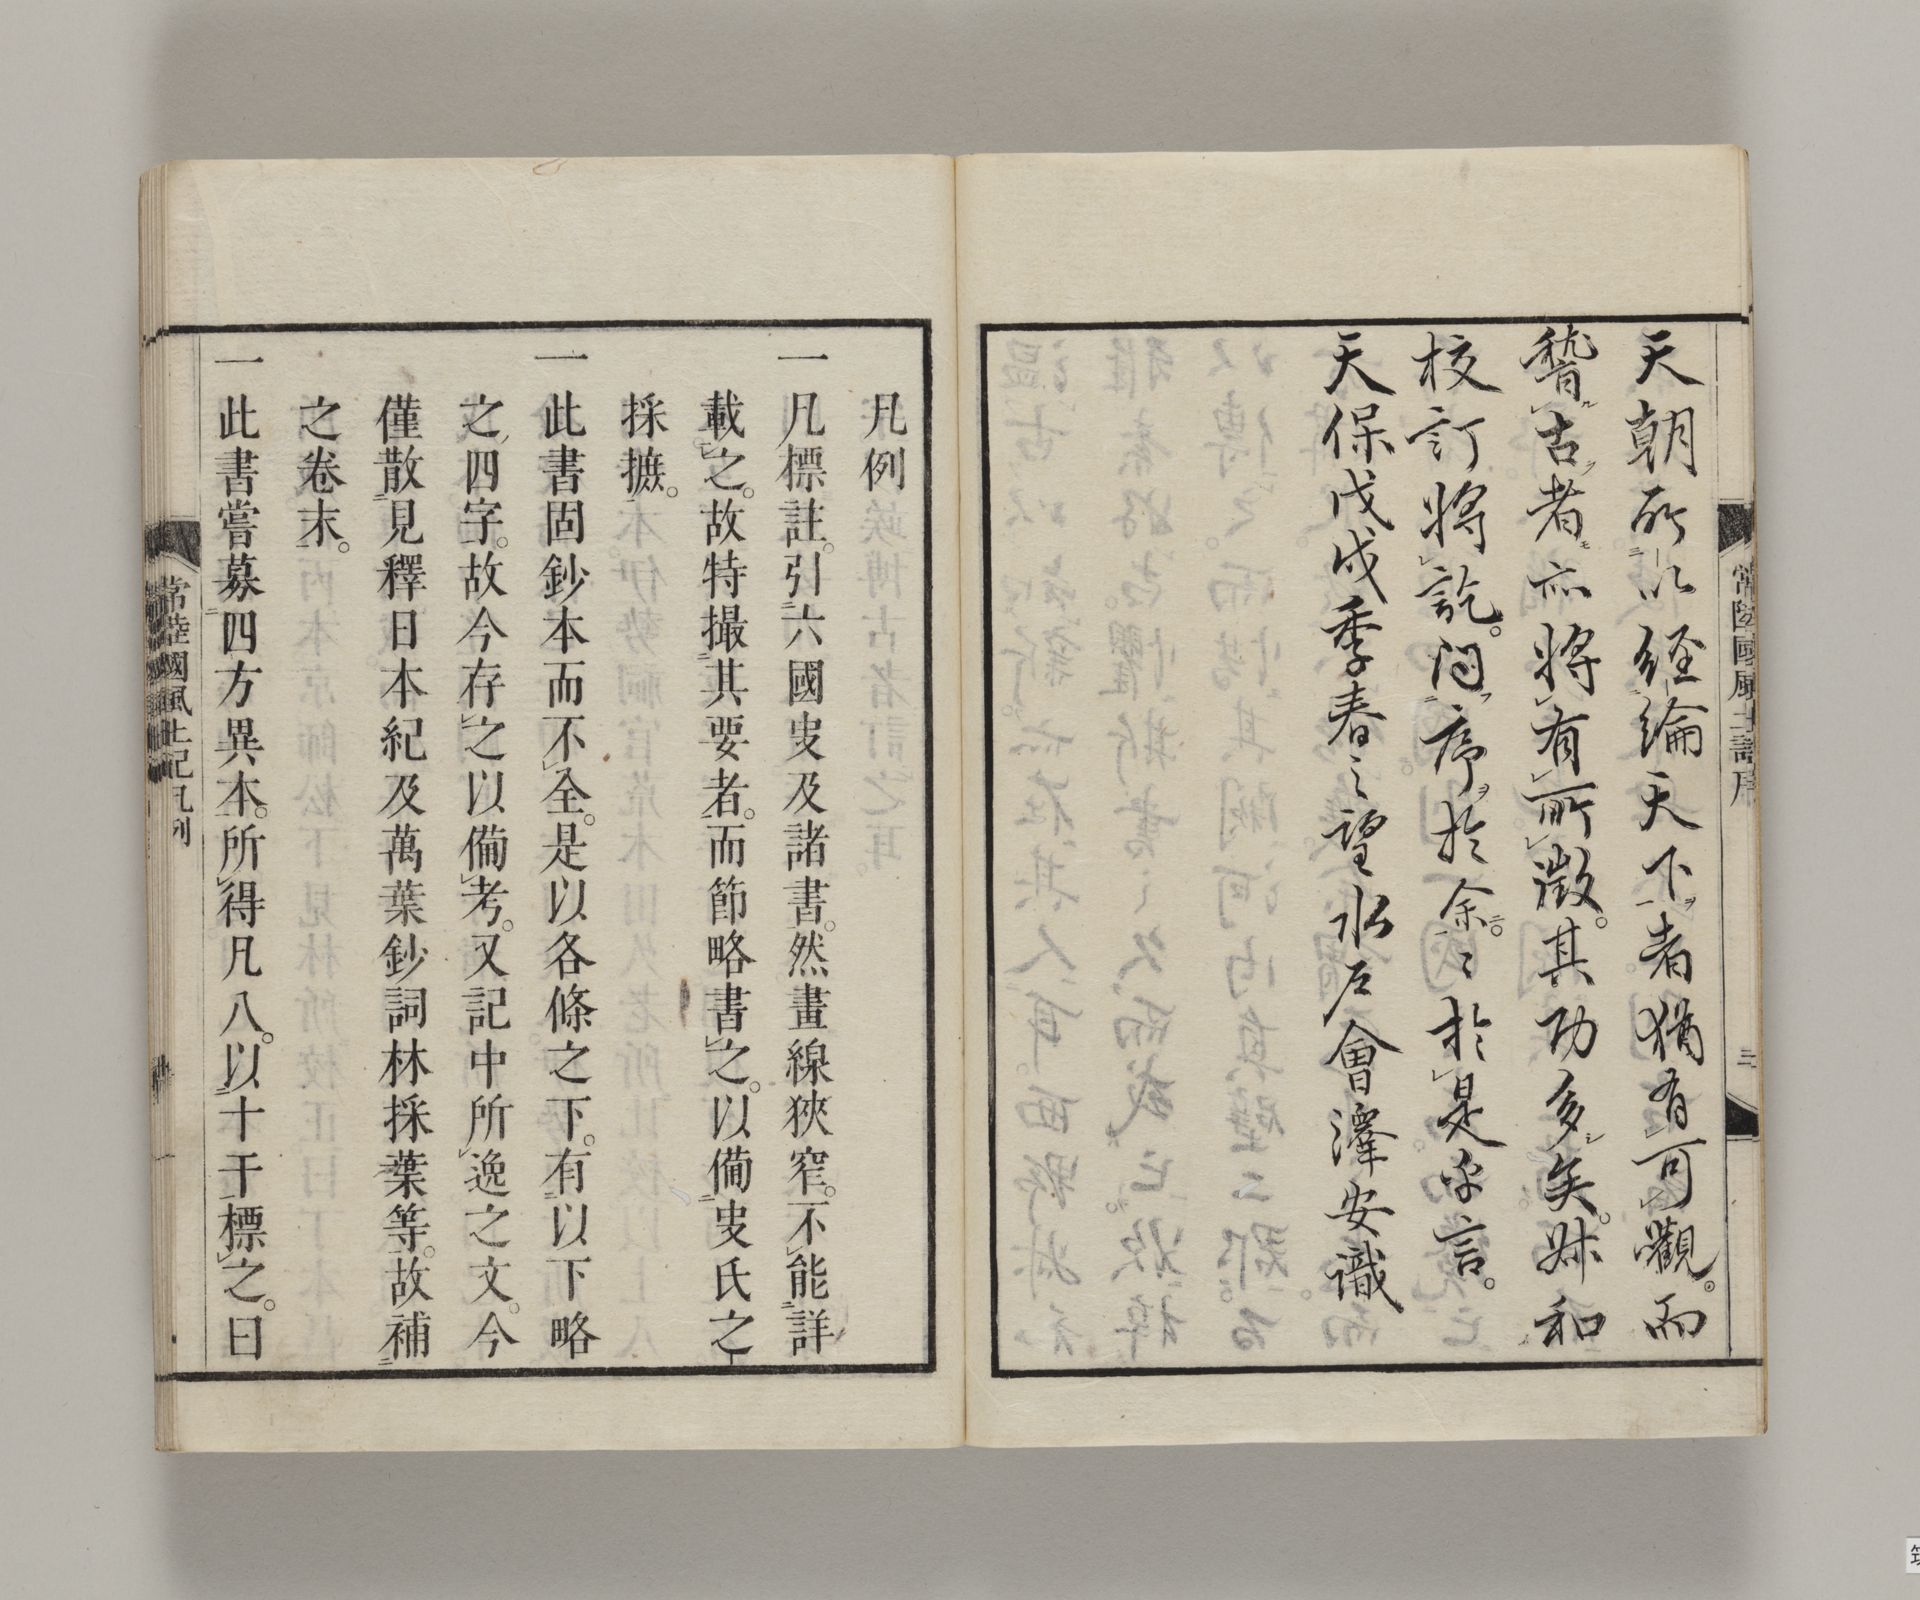 天朝所以経綸天下者猶有可觀。而
稽古者亦將有所徴。其功多矣。
校訂將訖。問序於余。於是乎言。
天保戊戌季春之望水戸會澤安識
常陸國風土記序
二
凡例
一凡標註。引六國史及諸書。然畫線狹窄。不能詳
載之。故特撮其要者。而節略書之。以備史氏之
採摭。
一此書固鈔本而不全。是以各條之下。有以下略
之四字。故今存之以備考。又記中所逸之文。今
僅散見釋日本紀及萬葉鈔詞林採葉等。故補
之卷末。
一此書嘗募四方異本。所得凡八。以十干標之。曰
常陸國風土記凡例